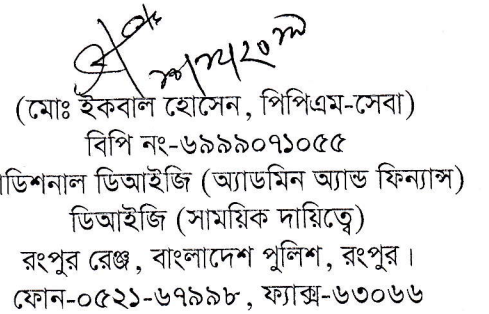 (মোঃ ইকবাল হোসেন, পিপিএম-সেবা)
বিপি নং-৬৯৯৯০৭১০৫৫
ডিশনাল ডিআইজি (অ্যাডমিন অ্যান্ড ফিন্যান্স)
ডিআইজি (সাময়িক দায়িত্বে)
রংপুর রেঞ্জ, বাংলাদেশ পুলিশ, রংপুর।
ফোন-০৫২১-৬৭৯৯৮, ফ্যাক্স-৬৩০৬৬